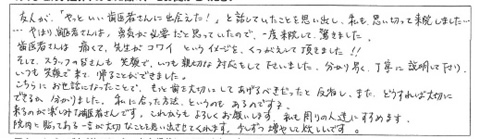 友人が、「やっといい歯医者さんに出会えた!」と話していたことを思い出し、私も思い切って来院しました……
やはり歯医者さんは、勇気が必要だと思っていたので、一度来院して、驚きました。
歯医者さんは痛くて、先生がコワイというイメージを、くつがえして頂きました!!
そして、スタッフの皆さんも笑顔で、いつも親切な対応をして下さいました。分かり易く、丁寧に説明して下さり、
いつも笑顔で来て、帰ることができました。
こちらにお世話になったことで、もっと歯を大切にしてあげるべきだったと反省し、また、どうすれば大切に
できるか分かりました。私に合った方法、というのもあるのですネ。
来るのが楽しみな歯医者さんです。これからもよろしくお願いします。私も周りの人達にすすめます。
院内に貼ってある一言が大切なことを思い出させてくれます。少しずつ増やして欲しいです。